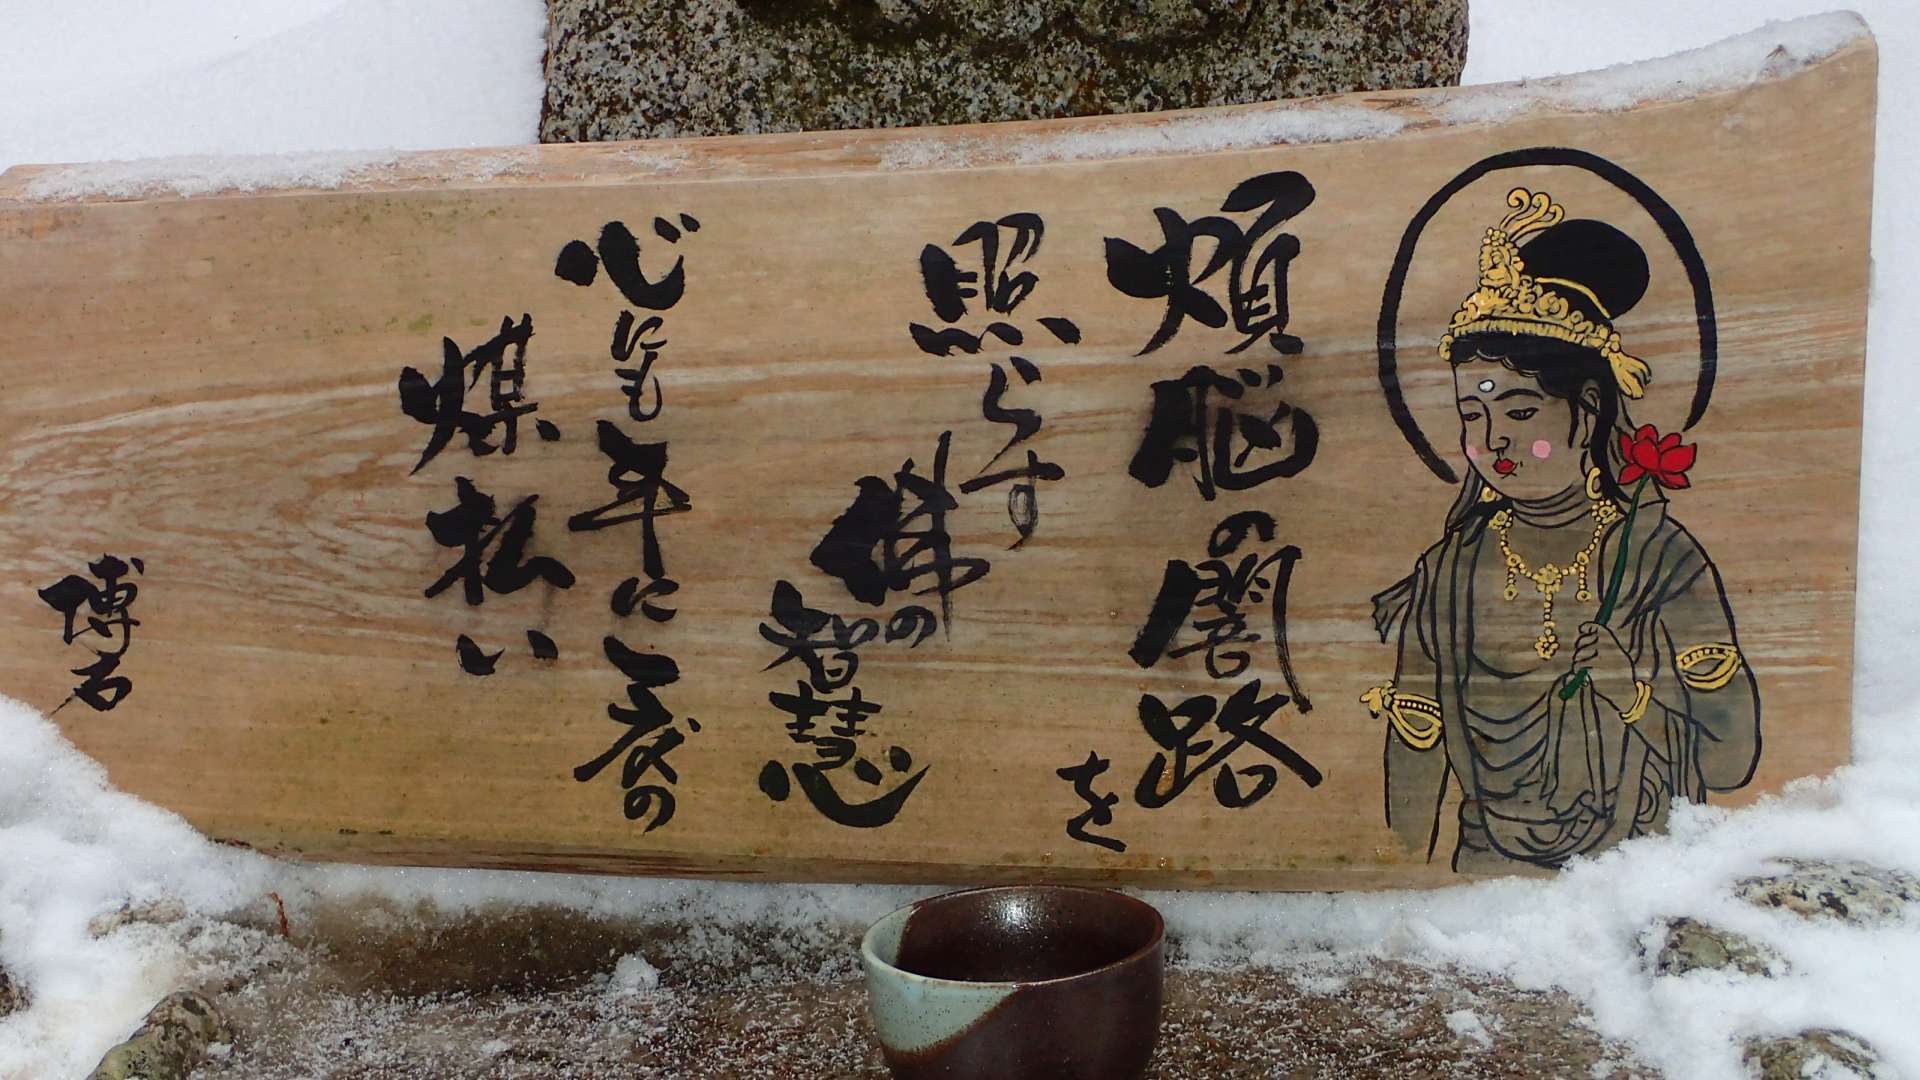 煩脳の闇路を
照らす
佛の
智慧
心にも年に一度の
煤払い
博